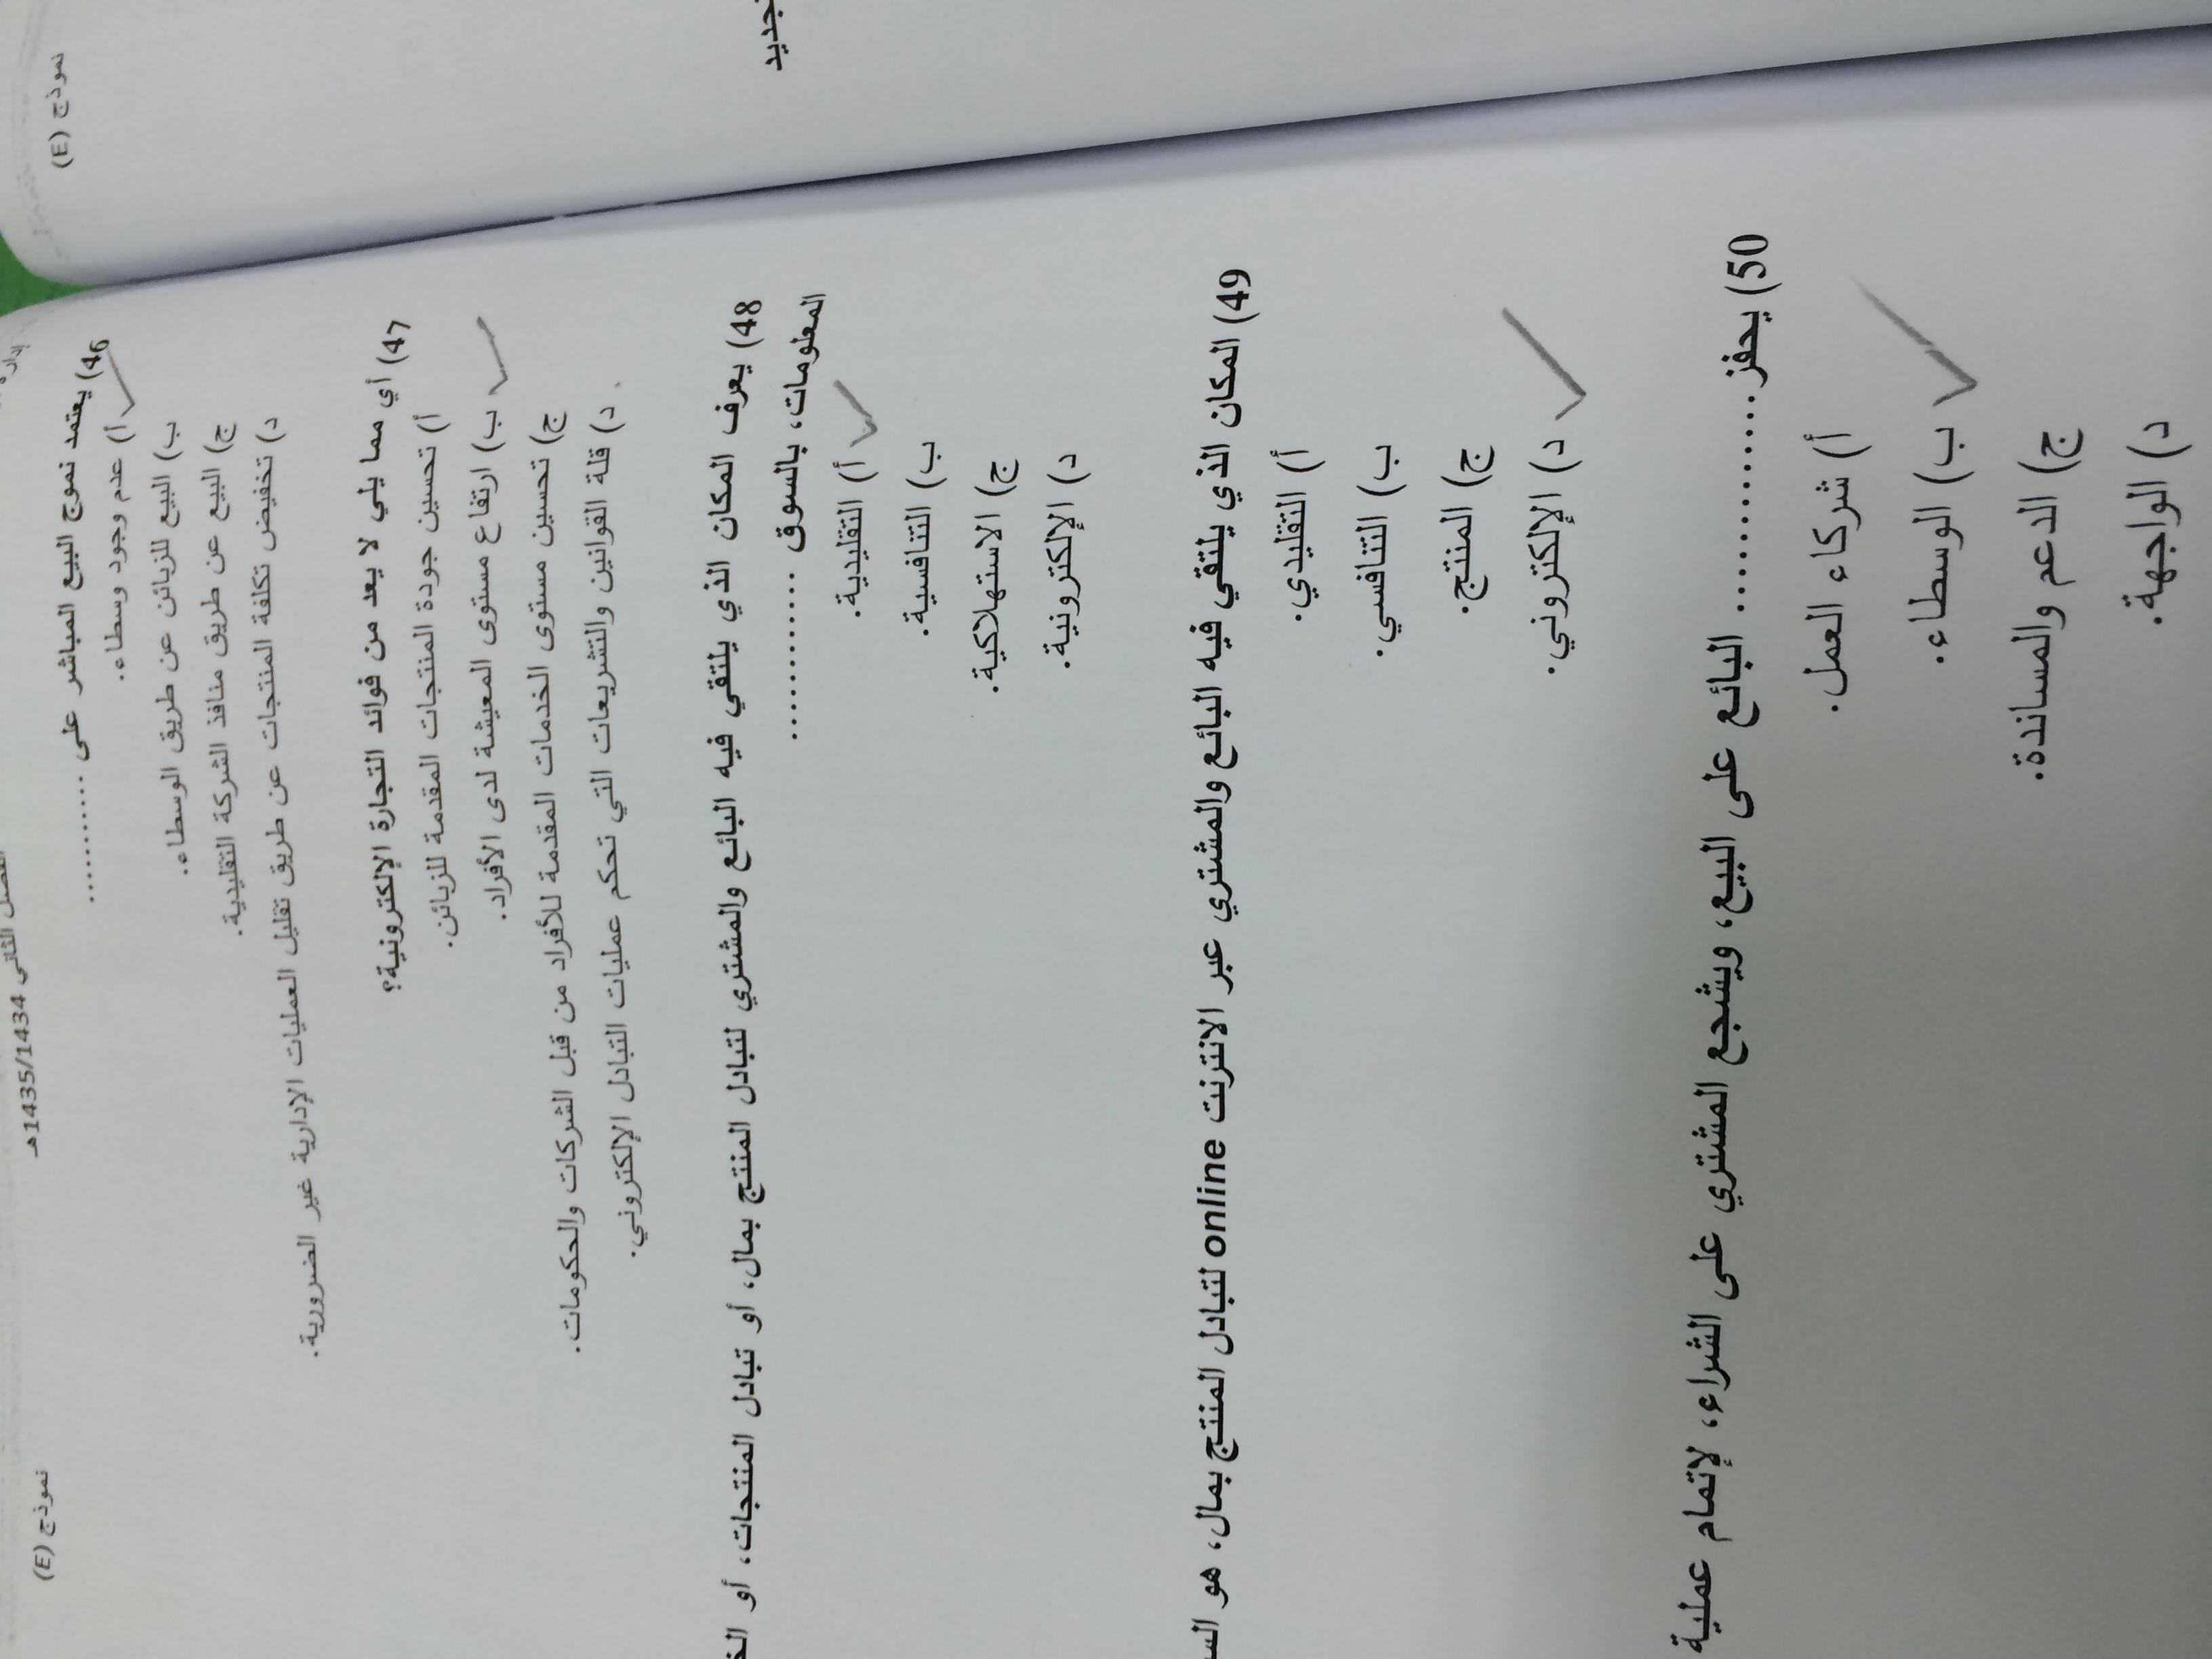 نموذج (E)
الفصل الثاني 1435/1434هـ
نموذج (E)
46) يعتمد نموج البيع المباشر على ...........
أ) عدم وجود وسطاء.
ب) البيع للزبائن عن طريق الوسطاء.
ج) البيع عن طريق منافذ الشركة التقليدية.
د) تخفيض تكلفة المنتجات عن طريق تقليل العمليات الإدارية غير الضرورية.
47) أي مما يلي لا يعد من فوائد التجارة الإلكترونية؟
أ) تحسين جودة المنتجات المقدمة للزبائن.
ب) ارتفاع مستوى المعيشة لدى الأفراد.
ج) تحسين مستوى الخدمات المقدمة للأفراد من قبل الشركات والحكومات.
د) قلة القوانين والتشريعات التي تحكم عمليات التبادل الإلكتروني.
48) يعرف المكان الذي يلتقي فيه البائع والمشتري لتبادل المنتج بمال، أو تبادل المنتجات، أو
المعلومات، بالسوق ............
أ) التقليدية.
ب) التنافسية.
ج) الاستهلاكية.
د) الإلكترونية.
49) المكان الذي يلتقي فيه البائع والمشتري عبر الانترنت online لتبادل المنتج بمال، هو
أ) التقليدي.
ب) التنافسي.
ج) المنتج.
د) الإلكتروني.
50) يحفز .............. البائع على البيع، ويشجع المشتري على الشراء، لإتمام عملية
أ) شركاء العمل.
ب) الوسطاء.
ج) الدعم والمساندة.
د) الواجهة.